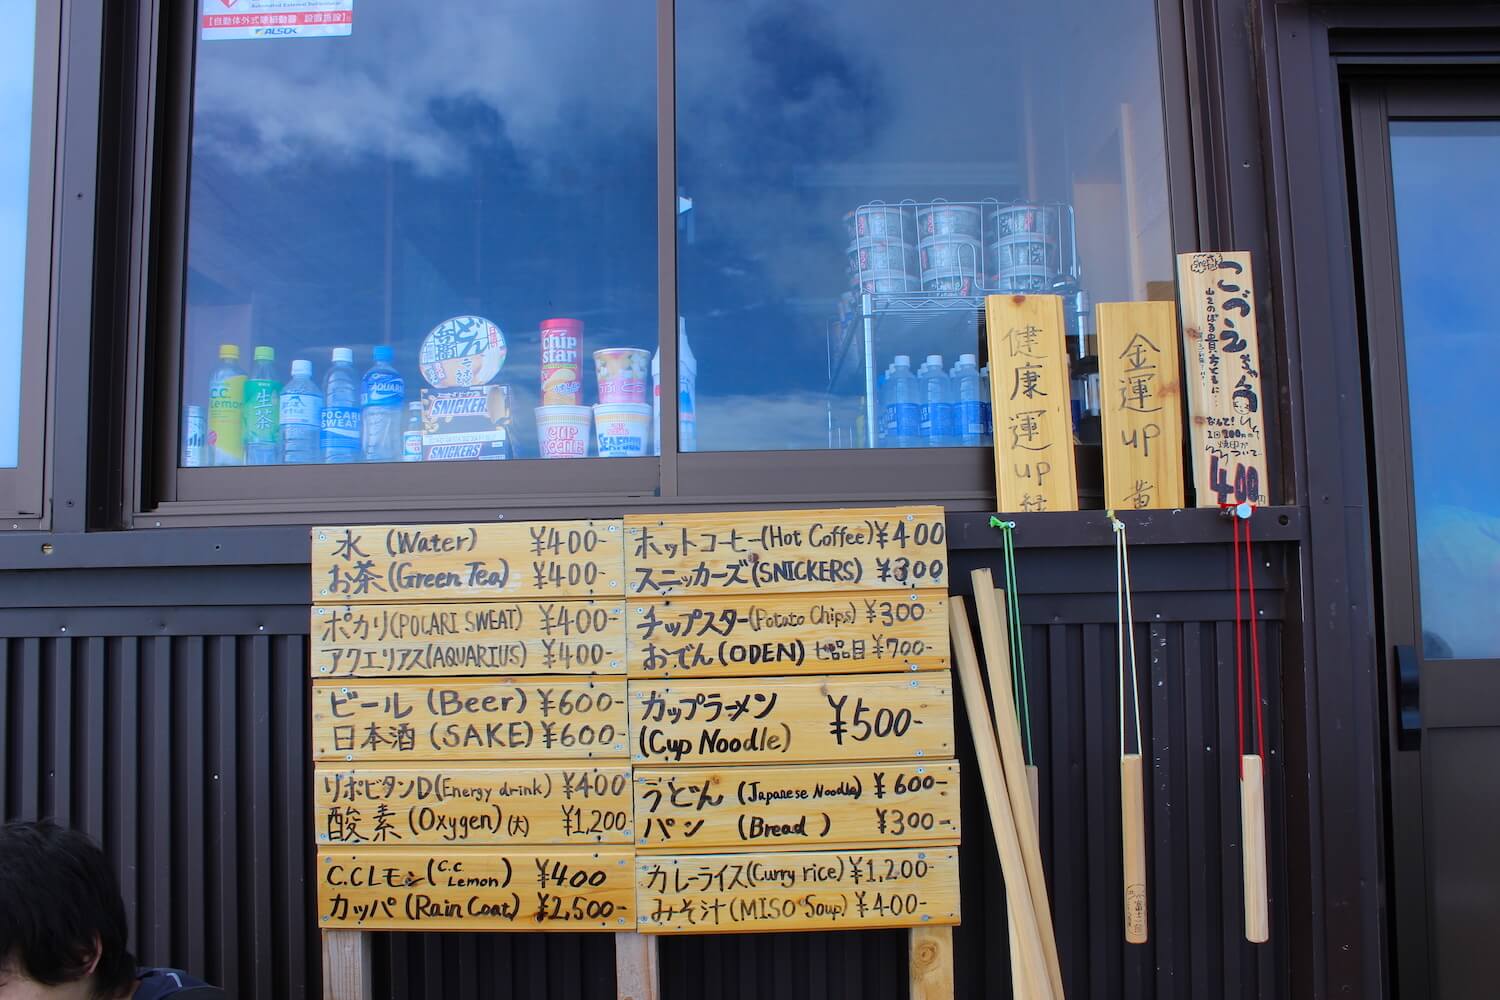 Automated External Defibrillator
【自動体外式除細動器 設置施設】
ALSOK
C.C.
Lemon
生茶
POCARI
SWEAT
AQUARIUS
どん
兵衛
SNICKERS
SNICKERS
Chip
star
CUP
NOODLE
SEAFOOD
健康運up
緑
金運up
黄
こづえちゃん
山をのぼる貴方と共に
なんて!
1回200円の
焼印が
ついて
400円
水 (Water) ¥400-
お茶(Green Tea) ¥400-
ポカリ(POCARI SWEAT) ¥400-
アクエリアス(AQUARIUS) ¥400-
ビール (Beer) ¥600-
日本酒 (SAKE) ¥600-
リポビタンD(Energy drink) ¥400
酸素 (Oxygen) (大) ¥1,200-
C.Cレモン(C.C Lemon) ¥400
カッパ(Rain Coat) ¥2,500-
ホットコーヒー(Hot Coffee)¥400
スニッカーズ(SNICKERS) ¥300
チップスター(Potato Chips) ¥300
おでん(ODEN) 七品目 ¥700-
カップラーメン
(Cup Noodle) ¥500-
うどん (Japanese Noodle) ¥600-
パン (Bread) ¥300-
カレーライス(Curry rice)¥1,200-
みそ汁(MISO Soup) ¥400-